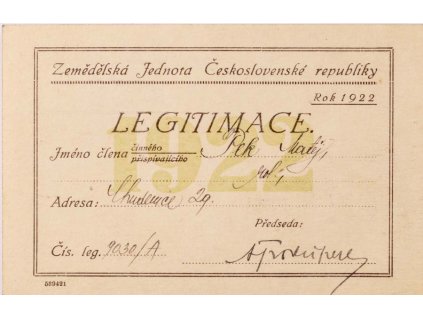 Zemědělská Jednota Československé republiky
Rok 1922
LEGITIMACE.
1922
Jméno člena činného
přispívajícího
Matěj,
rol.,
Adresa: 29.
Předseda:
Čís. leg. 9030/A
539421